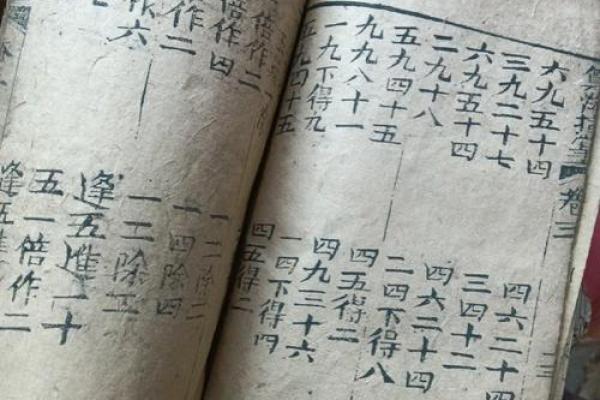 卷三
六九五十四
三九二十七
六九五十四
二九十八
五九四十五
九九八十一
一九下得九
五九四十五
四六二十四
三四十二
四六二十四
二四下得八
四五得二
四九三十六
一四下得四
四五得二
倍作二
倍作四
作二
作六
一二除二
一四除四
一二除二
逢五進一十
五一倍作二
逢五進